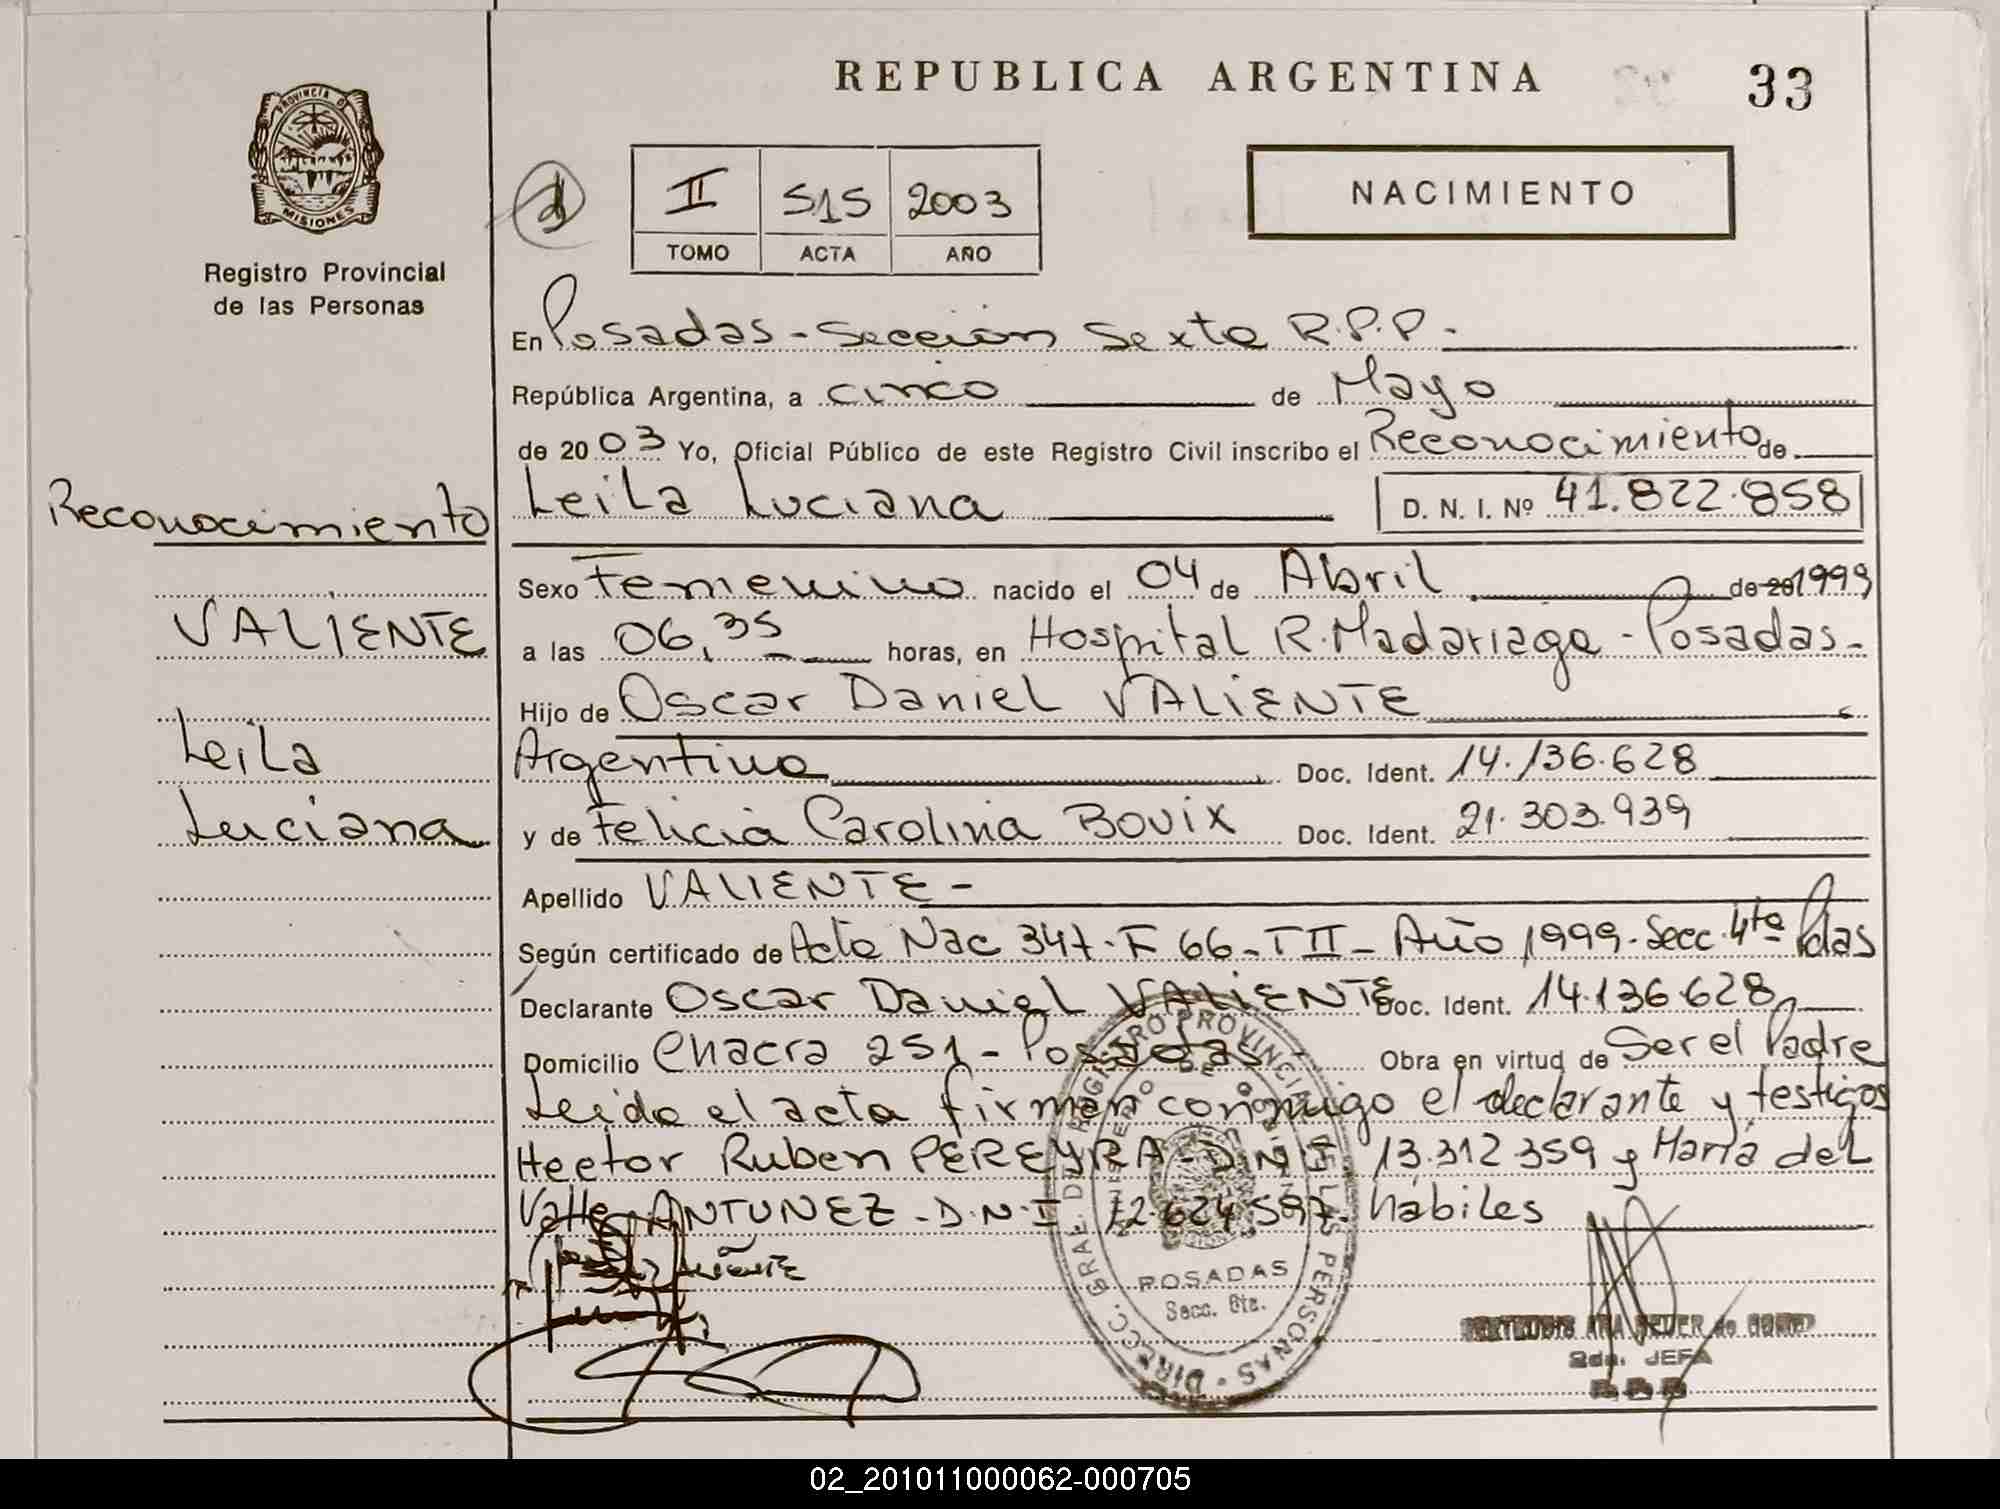 REPUBLICA ARGENTINA
33
PROVINCIA DE
MISIONES
Registro Provincial
de las Personas
II 515 2003
TOMO ACTA AÑO
NACIMIENTO
En Posadas - Sección Sexta R.P.P.
República Argentina, a cinco de Mayo
de 2003 Yo, Oficial Público de este Registro Civil inscribo el Reconocimiento de
Leila Luciana D. N. I. Nº 41.822.858
Reconocimiento
VALIENTE
Leila
Luciana
Sexo Femenino nacido el 04 de Abril de 20 1999
a las 06,35 horas, en Hospital R. Madariaga - Posadas -
Hijo de Oscar Daniel VALIENTE
Argentina Doc. Ident. 14.136.628
y de Felicia Carolina Bovix Doc. Ident. 21.303.939
Apellido VALIENTE -
Según certificado de Acta Nac 347. F 66 - T II - Año 1999. Secc. 4ta Pdas
Declarante Oscar Daniel VALIENTE Doc. Ident. 14.136.628
Domicilio Chacra 251 - Posadas - Obra en virtud de Ser el Padre
Leida el acta firman conmigo el declarante y testigos
Hector Ruben PEREYRA - D.N.I 13.312 359 y María del
Valle ANTUNEZ - D.N.I 12.624.597 hábiles
DIRECC. GRAL. DEL REGISTRO PROVINCIAL DE LAS PERSONAS
POSADAS
Secc. 6ta.
2da. JEFA
02_201011000062-000705